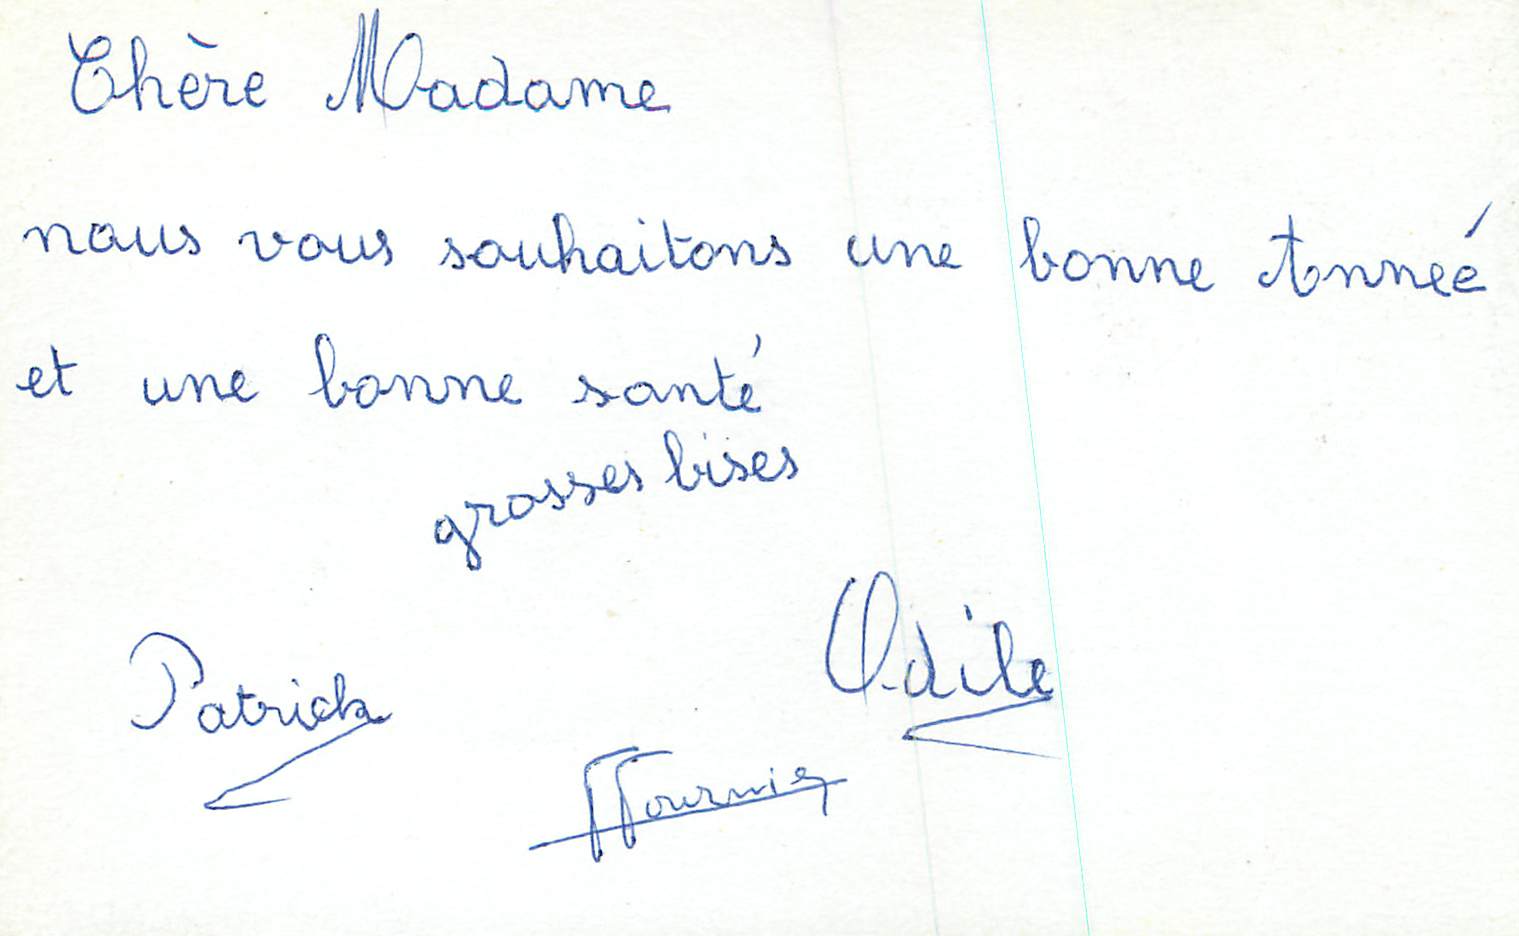 Chère Madame
nous vous souhaitons une bonne Anneé
et une bonne santé
grosses bises
Patrick
Odile
Fournier